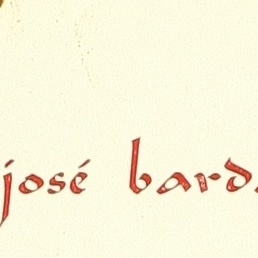 josé bard